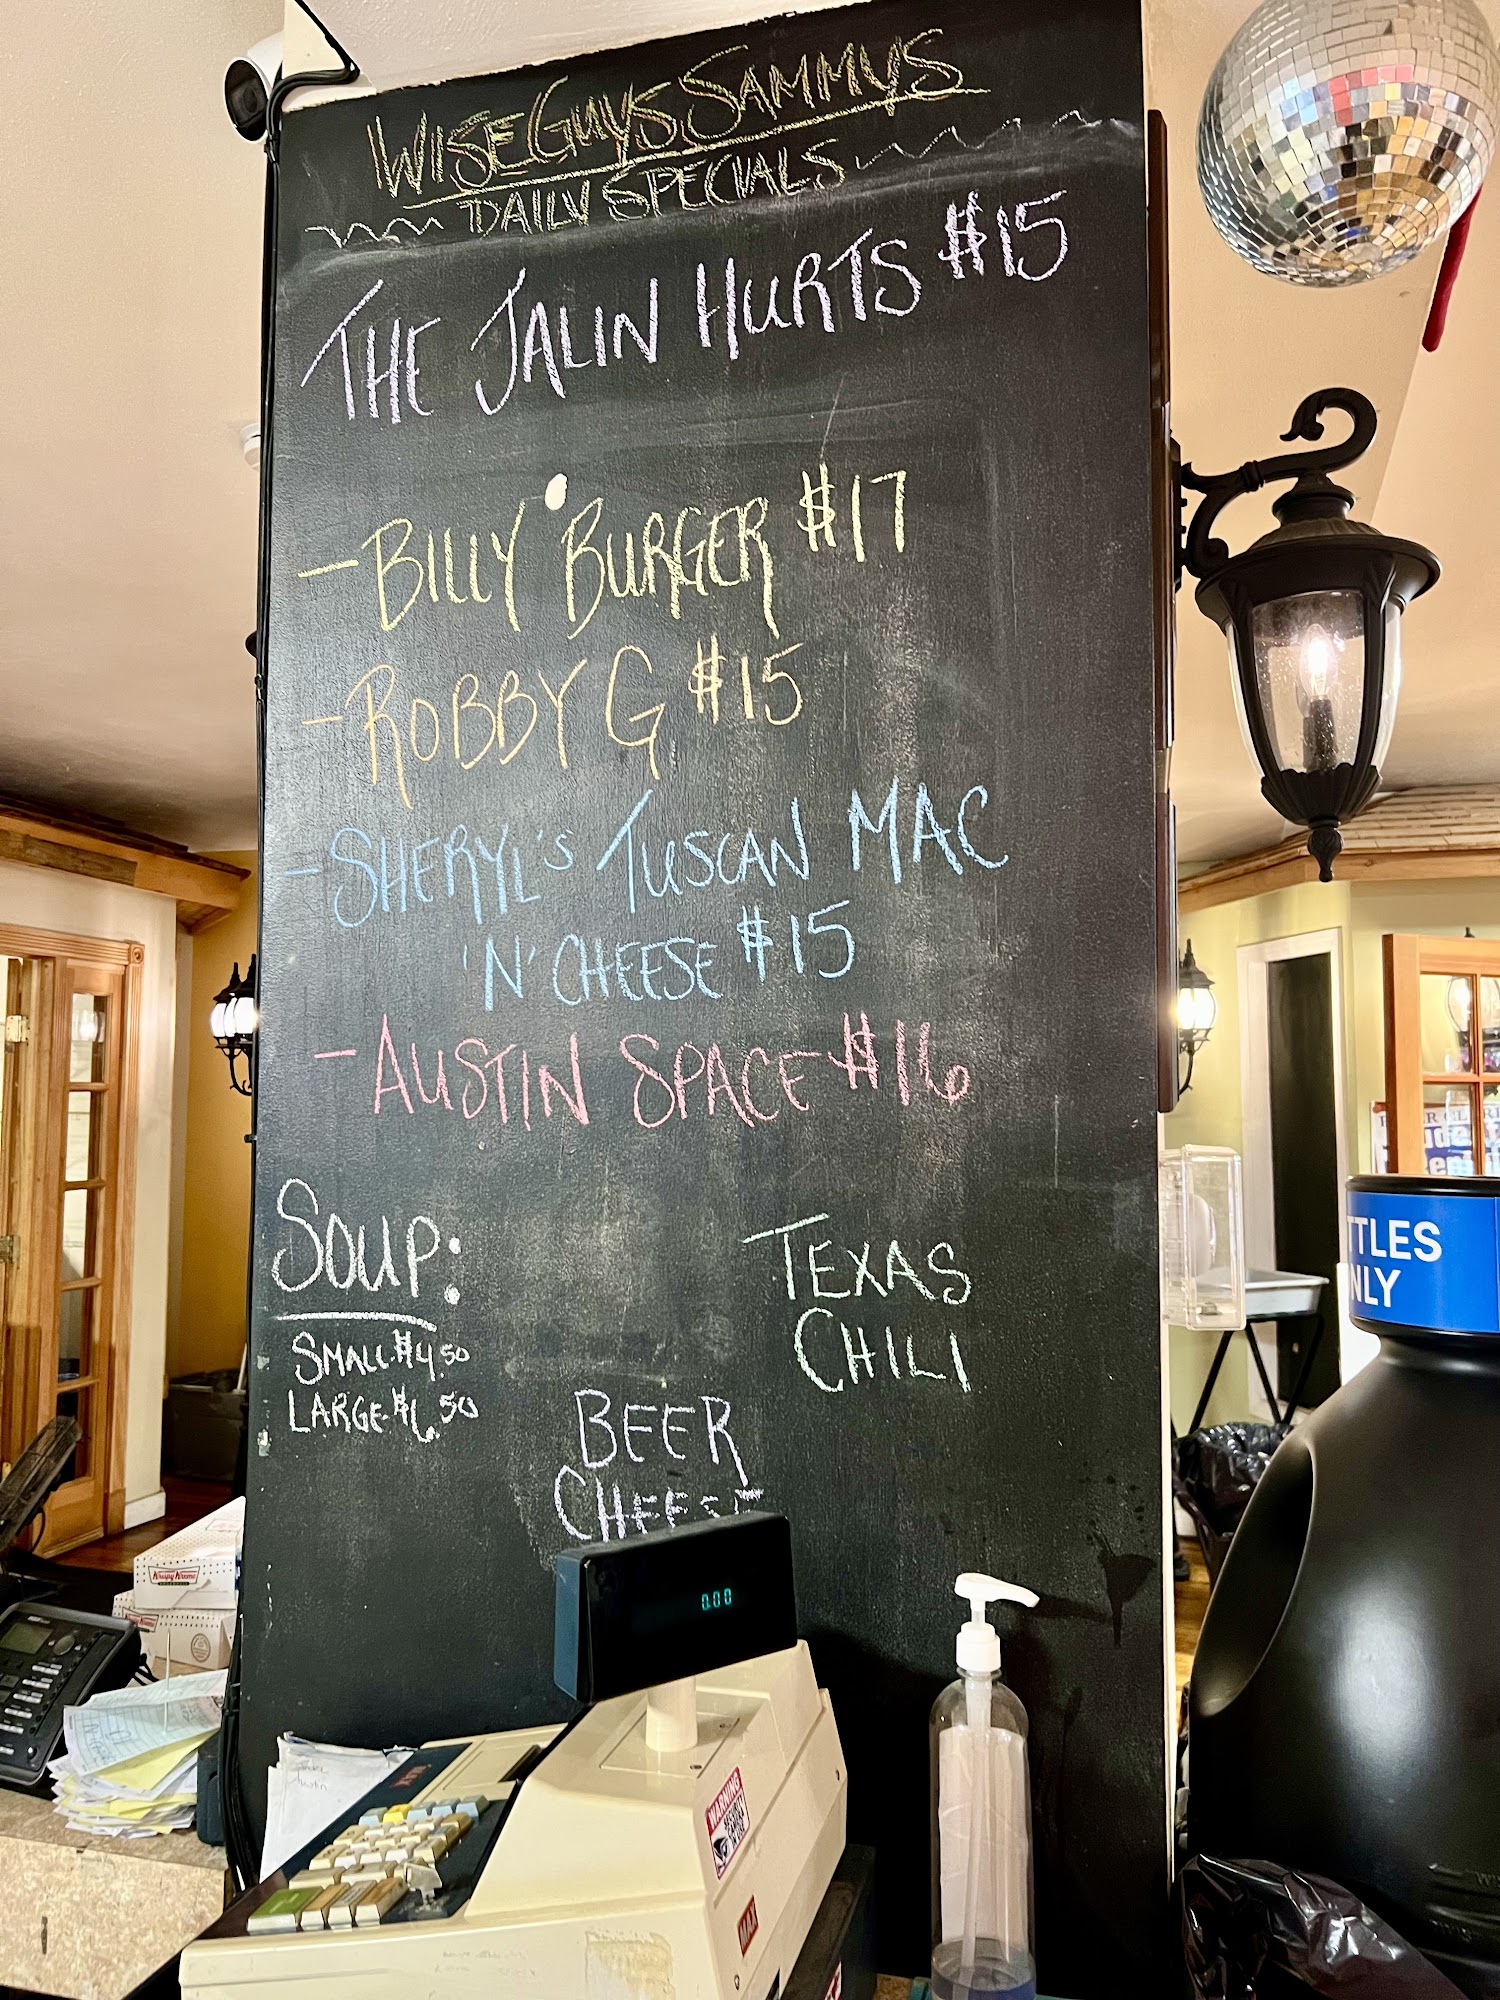 WISE GUYS SAMMYS
DAILY SPECIALS
THE JALIN HURTS $15
- BILLY BURGER $17
- ROBBY G $15
- SHERYL'S TUSCAN MAC
'N' CHEESE $15
- AUSTIN SPACE $16
SOUP:
SMALL $4.50
LARGE $6.50
TEXAS
CHILI
BEER
CHEESE
0.00
TTLES
NLY
Krispy Kreme
WARNING
MAX